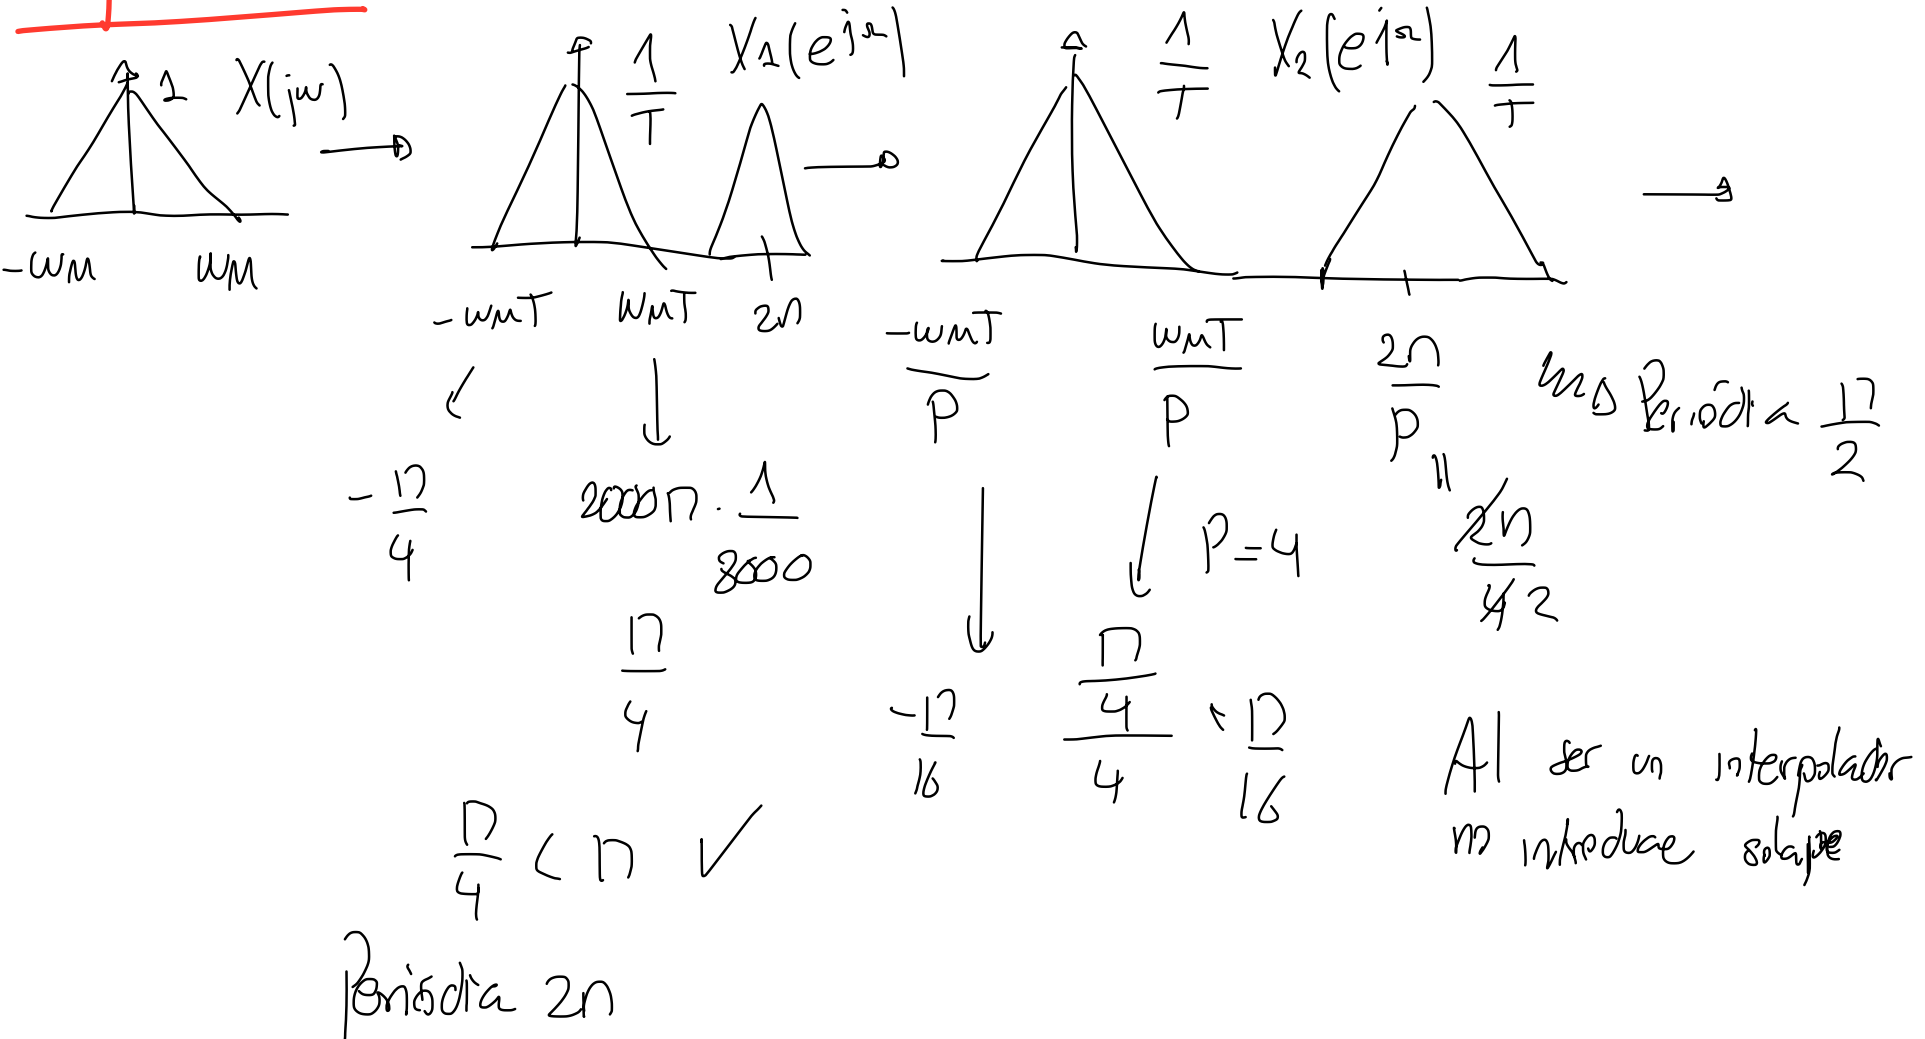 1 X(jw)
-WM WM
1/T X1(e^jΩ)
-WMT WMT 2π
-π/4
2000π · 1/8000
π/4
π/4 < π ✓
Periódica 2π
1/T X2(e^jΩ) 1/T
-WMT/P WMT/P 2π/P
P=4
-π/16
π/4/4 π/16
2π/4 2
Periódica π/2
Al ser un interpolador
no introduce solape